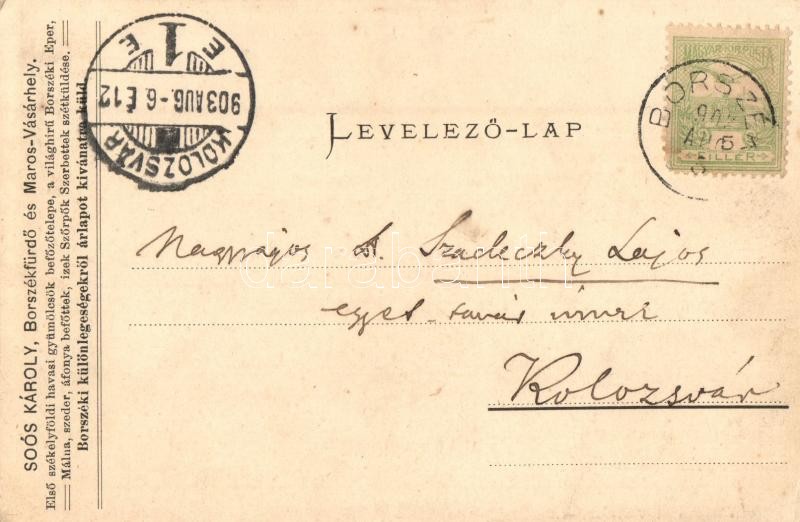 SOÓS KÁROLY, Borszékfürdő és Maros-Vásárhely.
Első székelyföldi havasi gyümölcsök befőzőtelepe, a világhírű Borszéki Eper,
Málna, szeder, áfonya befőttek, izek Szörpök Szerbettek szétküldése.
Borszéki különlegességekről árlapot kívánatra küld.
KOLOZSVÁR
903 AUG.-6. É 12
E 1 E
MAGYAR KIR. POSTA
FILLÉR
BORSZÉ
903
AUG 5
LEVELEZŐ-LAP
Nagyságos Dr. Szadeczky Lajos
egyet. tanár úrnak
Kolozsvár
darabanth